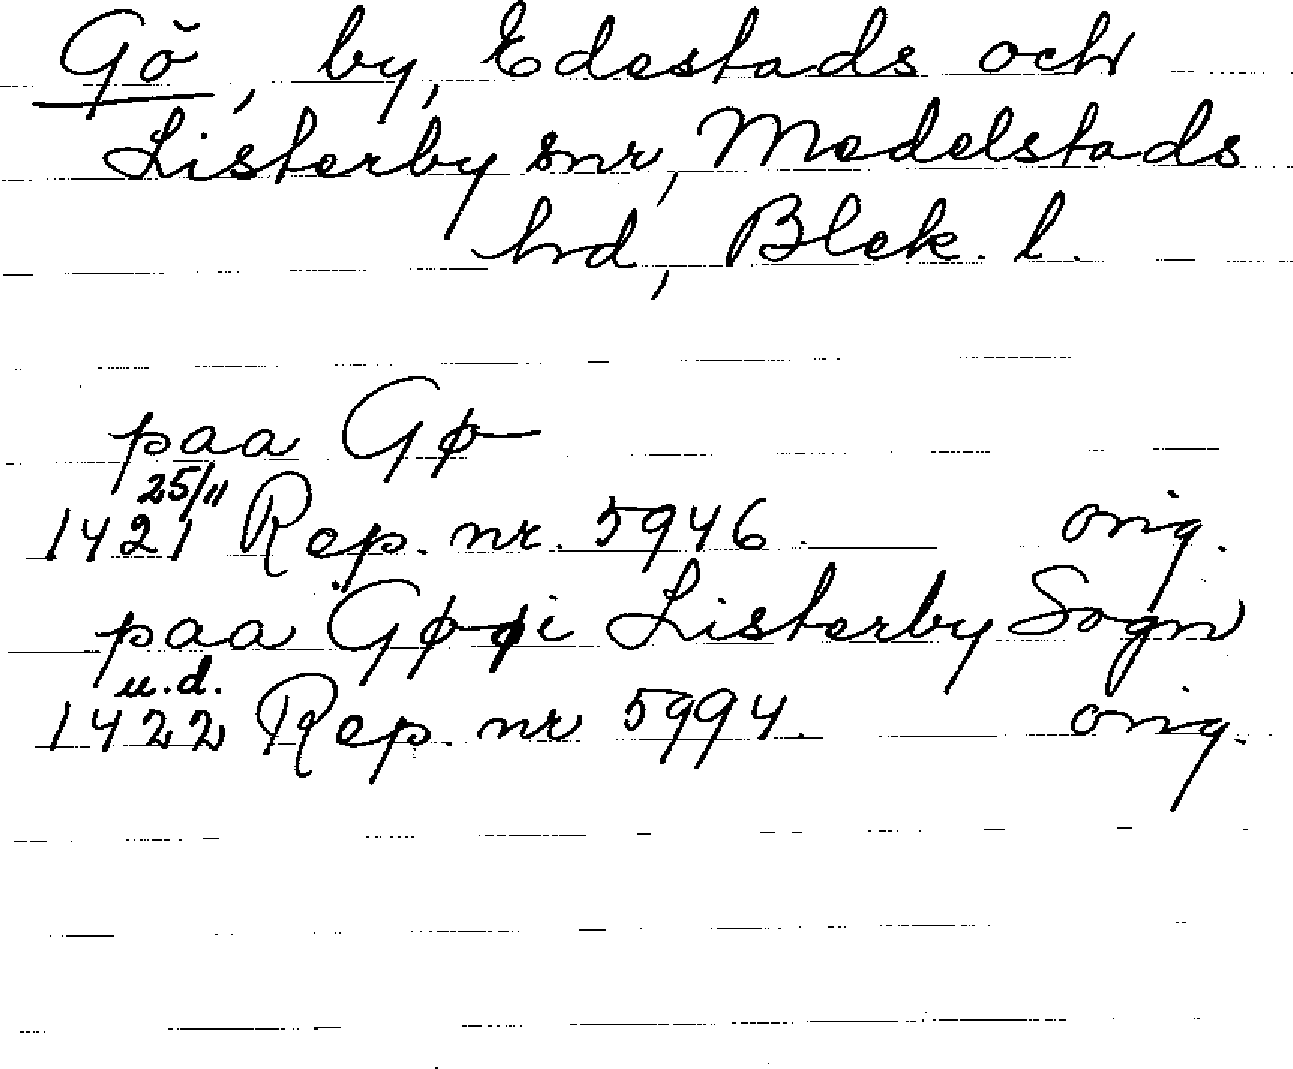 Gö, by, Edestads och
Listerby snr, Medelstads
hd, Blek. l.
paa Gø
25/11
1421 Rep. nr. 5946. orig.
paa Gø i Listerby Sogn
u.d.
1422 Rep. nr 5994. orig.